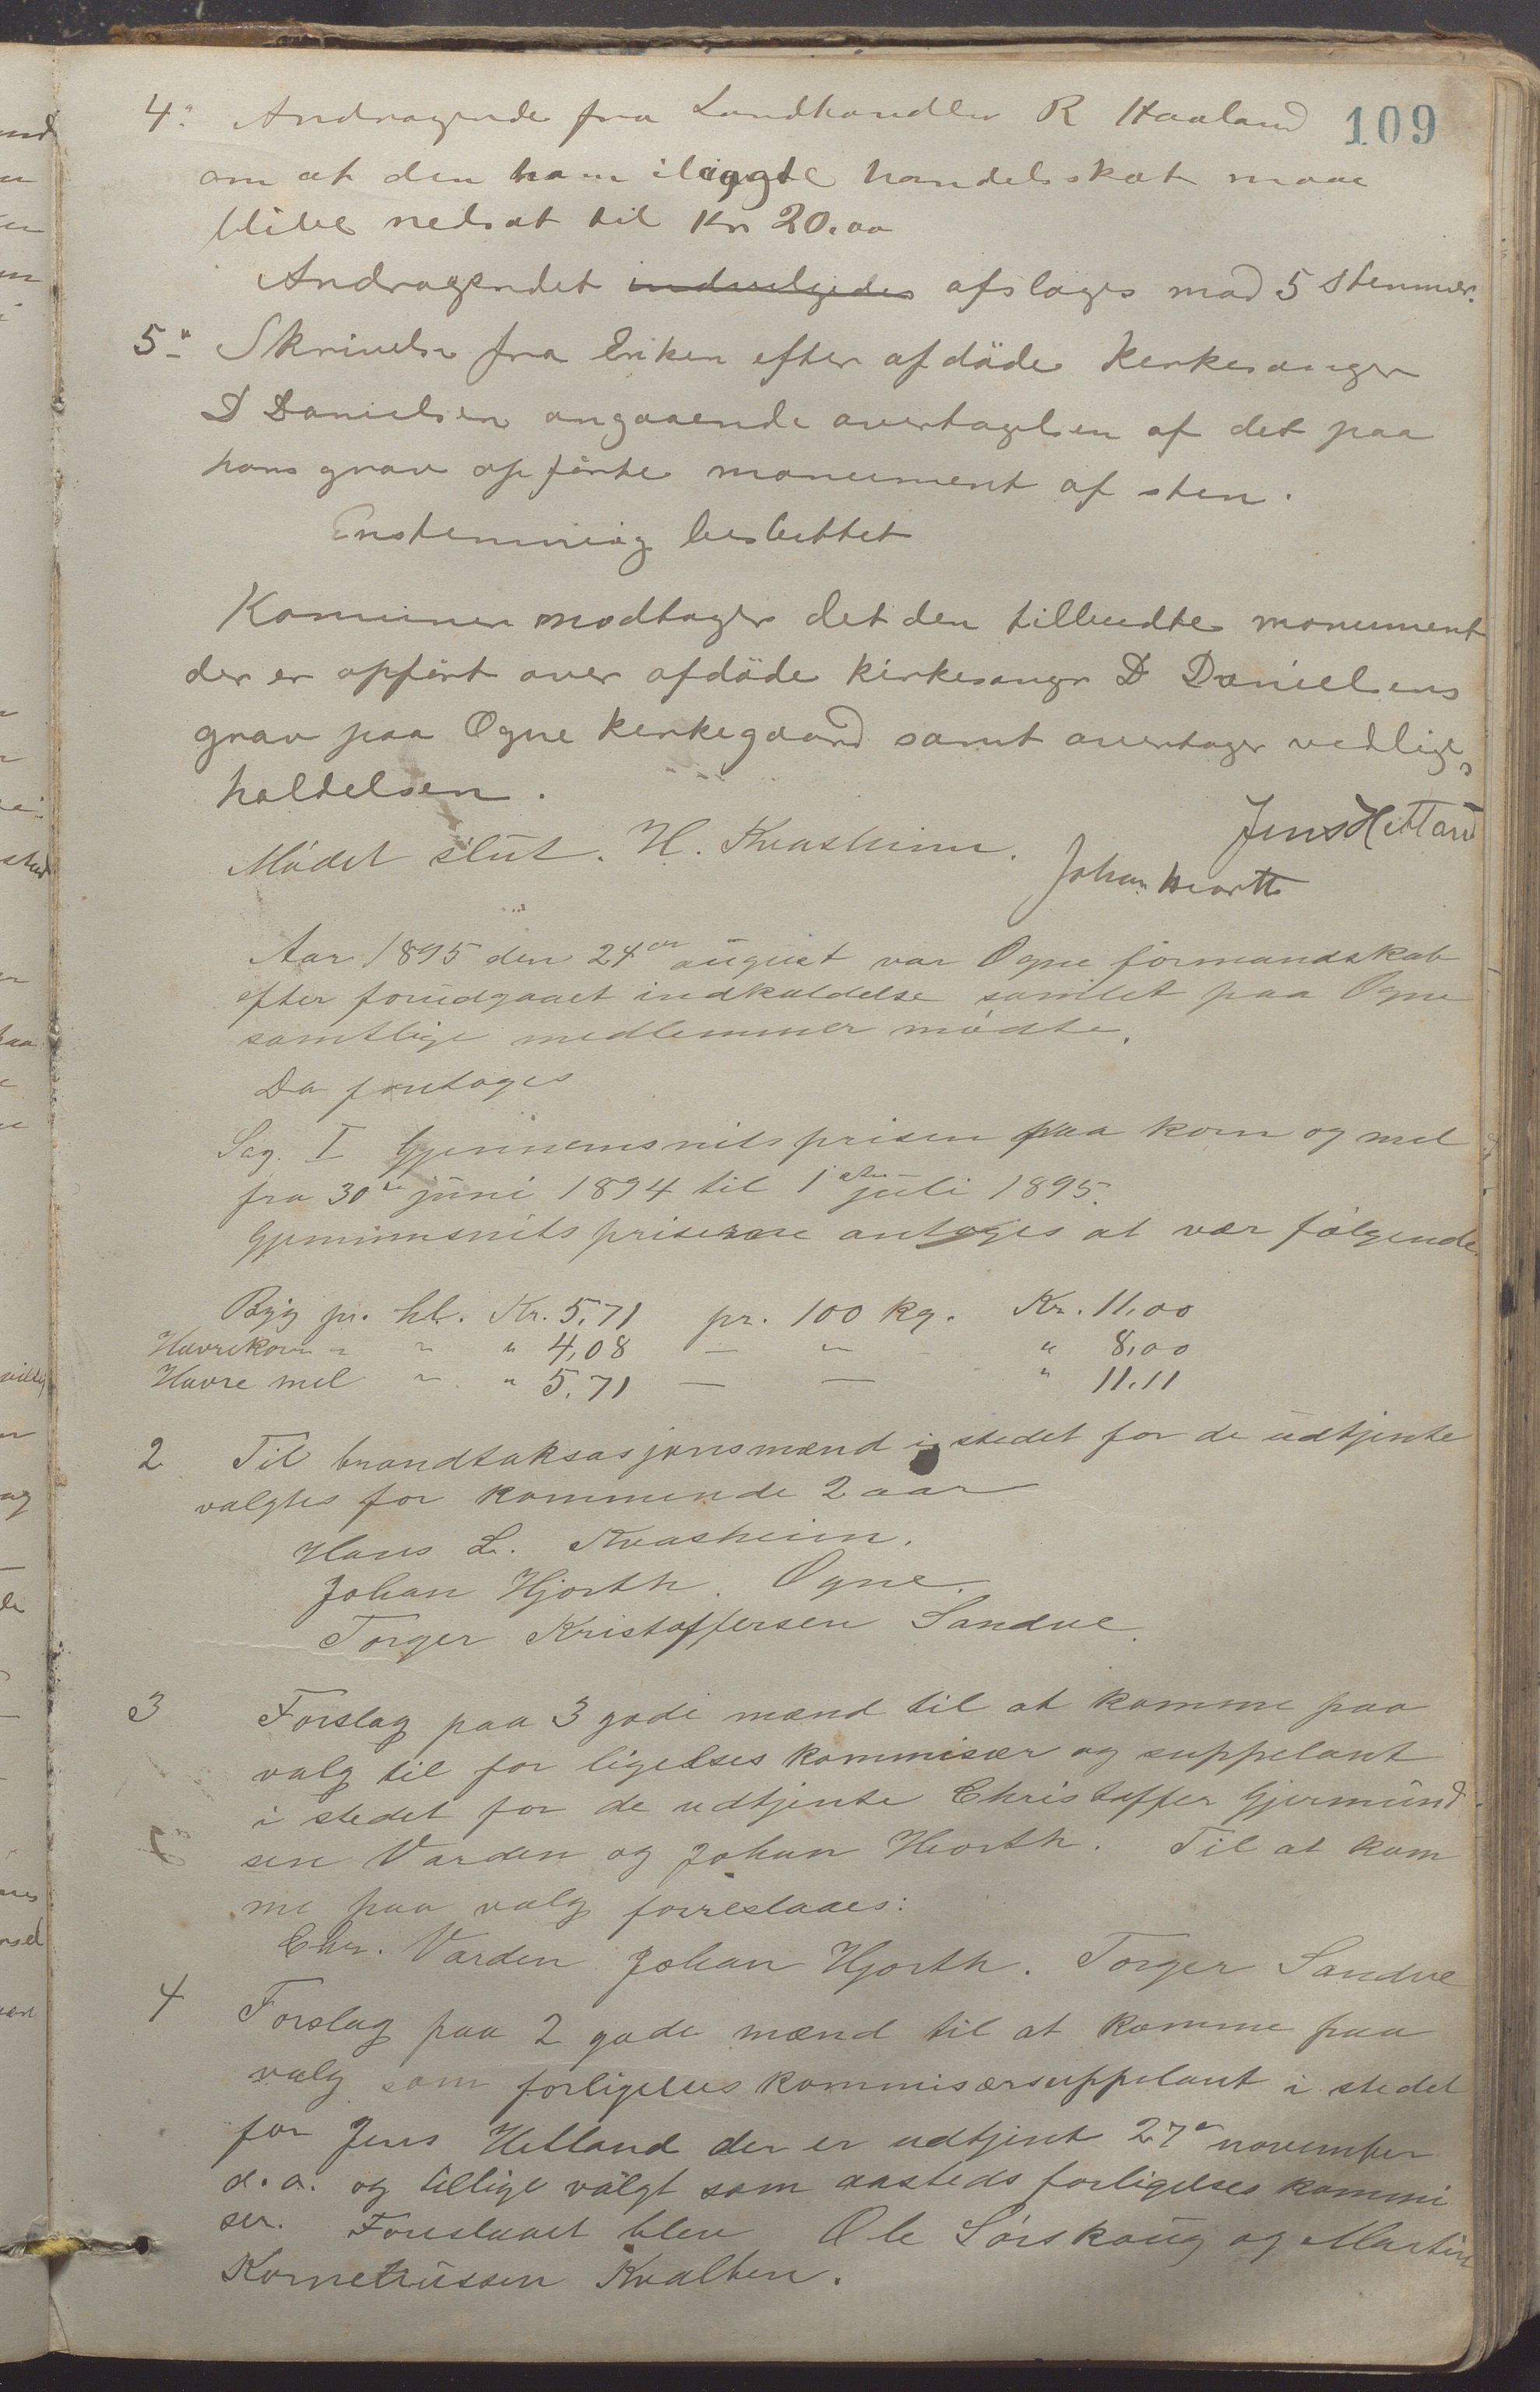 109
4: Andragende fra Landhandler R Haaland
om at den ham ilagte handelsskat maae
blive nedsat til Kr 20.00
Andragendet indvilgedes afsloges mod 5 stemmer.
5: Skrivelse fra Enken efter afdöde Kirkesanger
D Danielsen angaaende overtagelsen af det paa
hans grav opförte monument af sten.
Enstemmig besluttet
Komunen modtager det den tilbudte monument
der er opfört over afdöde kirkesanger D Danielsens
grav paa Ogne Kirkegaard samt overtager vedlige-
holdelsen.
Mödet slut. H. Kvasheim. Jens Hetland
Johan Hiorth
Aar 1895 den 24de august var Ogne formandskab
efter forudgaaet indkaldelse samlet paa Ogne
samtlige medlemmer mødte.
Da foretoges
Sag. I Gjennemsnitsprisen paa korn og mel
fra 30te juni 1894 til 1ste juli 1895.
Gjennemsnitspriserne antoges at vær følgende.
Byg pr. hl. Kr. 5,71 pr. 100 kg. Kr. 11,00
Havrekorn " " " 4,08 — " — " 8,00
Havre mel " " 5,71 — — " 11,11
2 Til brandtaksasjonsmænd i stedet for de udtjente
valgtes for kommende 2 aar
Hans L. Kvasheim.
Johan Hjorth. Ogne.
Torger Kristoffersen Sandve.
3 Forslag paa 3 gode mænd til at komme paa
valg til for ligelses kommisær og suppelant
i stedet for de udtjente Christoffer Gjermund-
sen Varden og Johan Hiorth. Til at kom
me paa valg forreslaaes:
Chr. Varden Johan Hjorth. Torger Sandve
4 Forslag paa 2 gode mænd til at komme paa
valg som forligelses kommisærsuppelant i stedet
for Jens Hetland der er udtjent 27de november
d.a. og tillige valgt som aasteds forligelses kommi
sær. Foreslaaet blev Ole Sørskoug og Martin
Kornetiussen Kvalben.